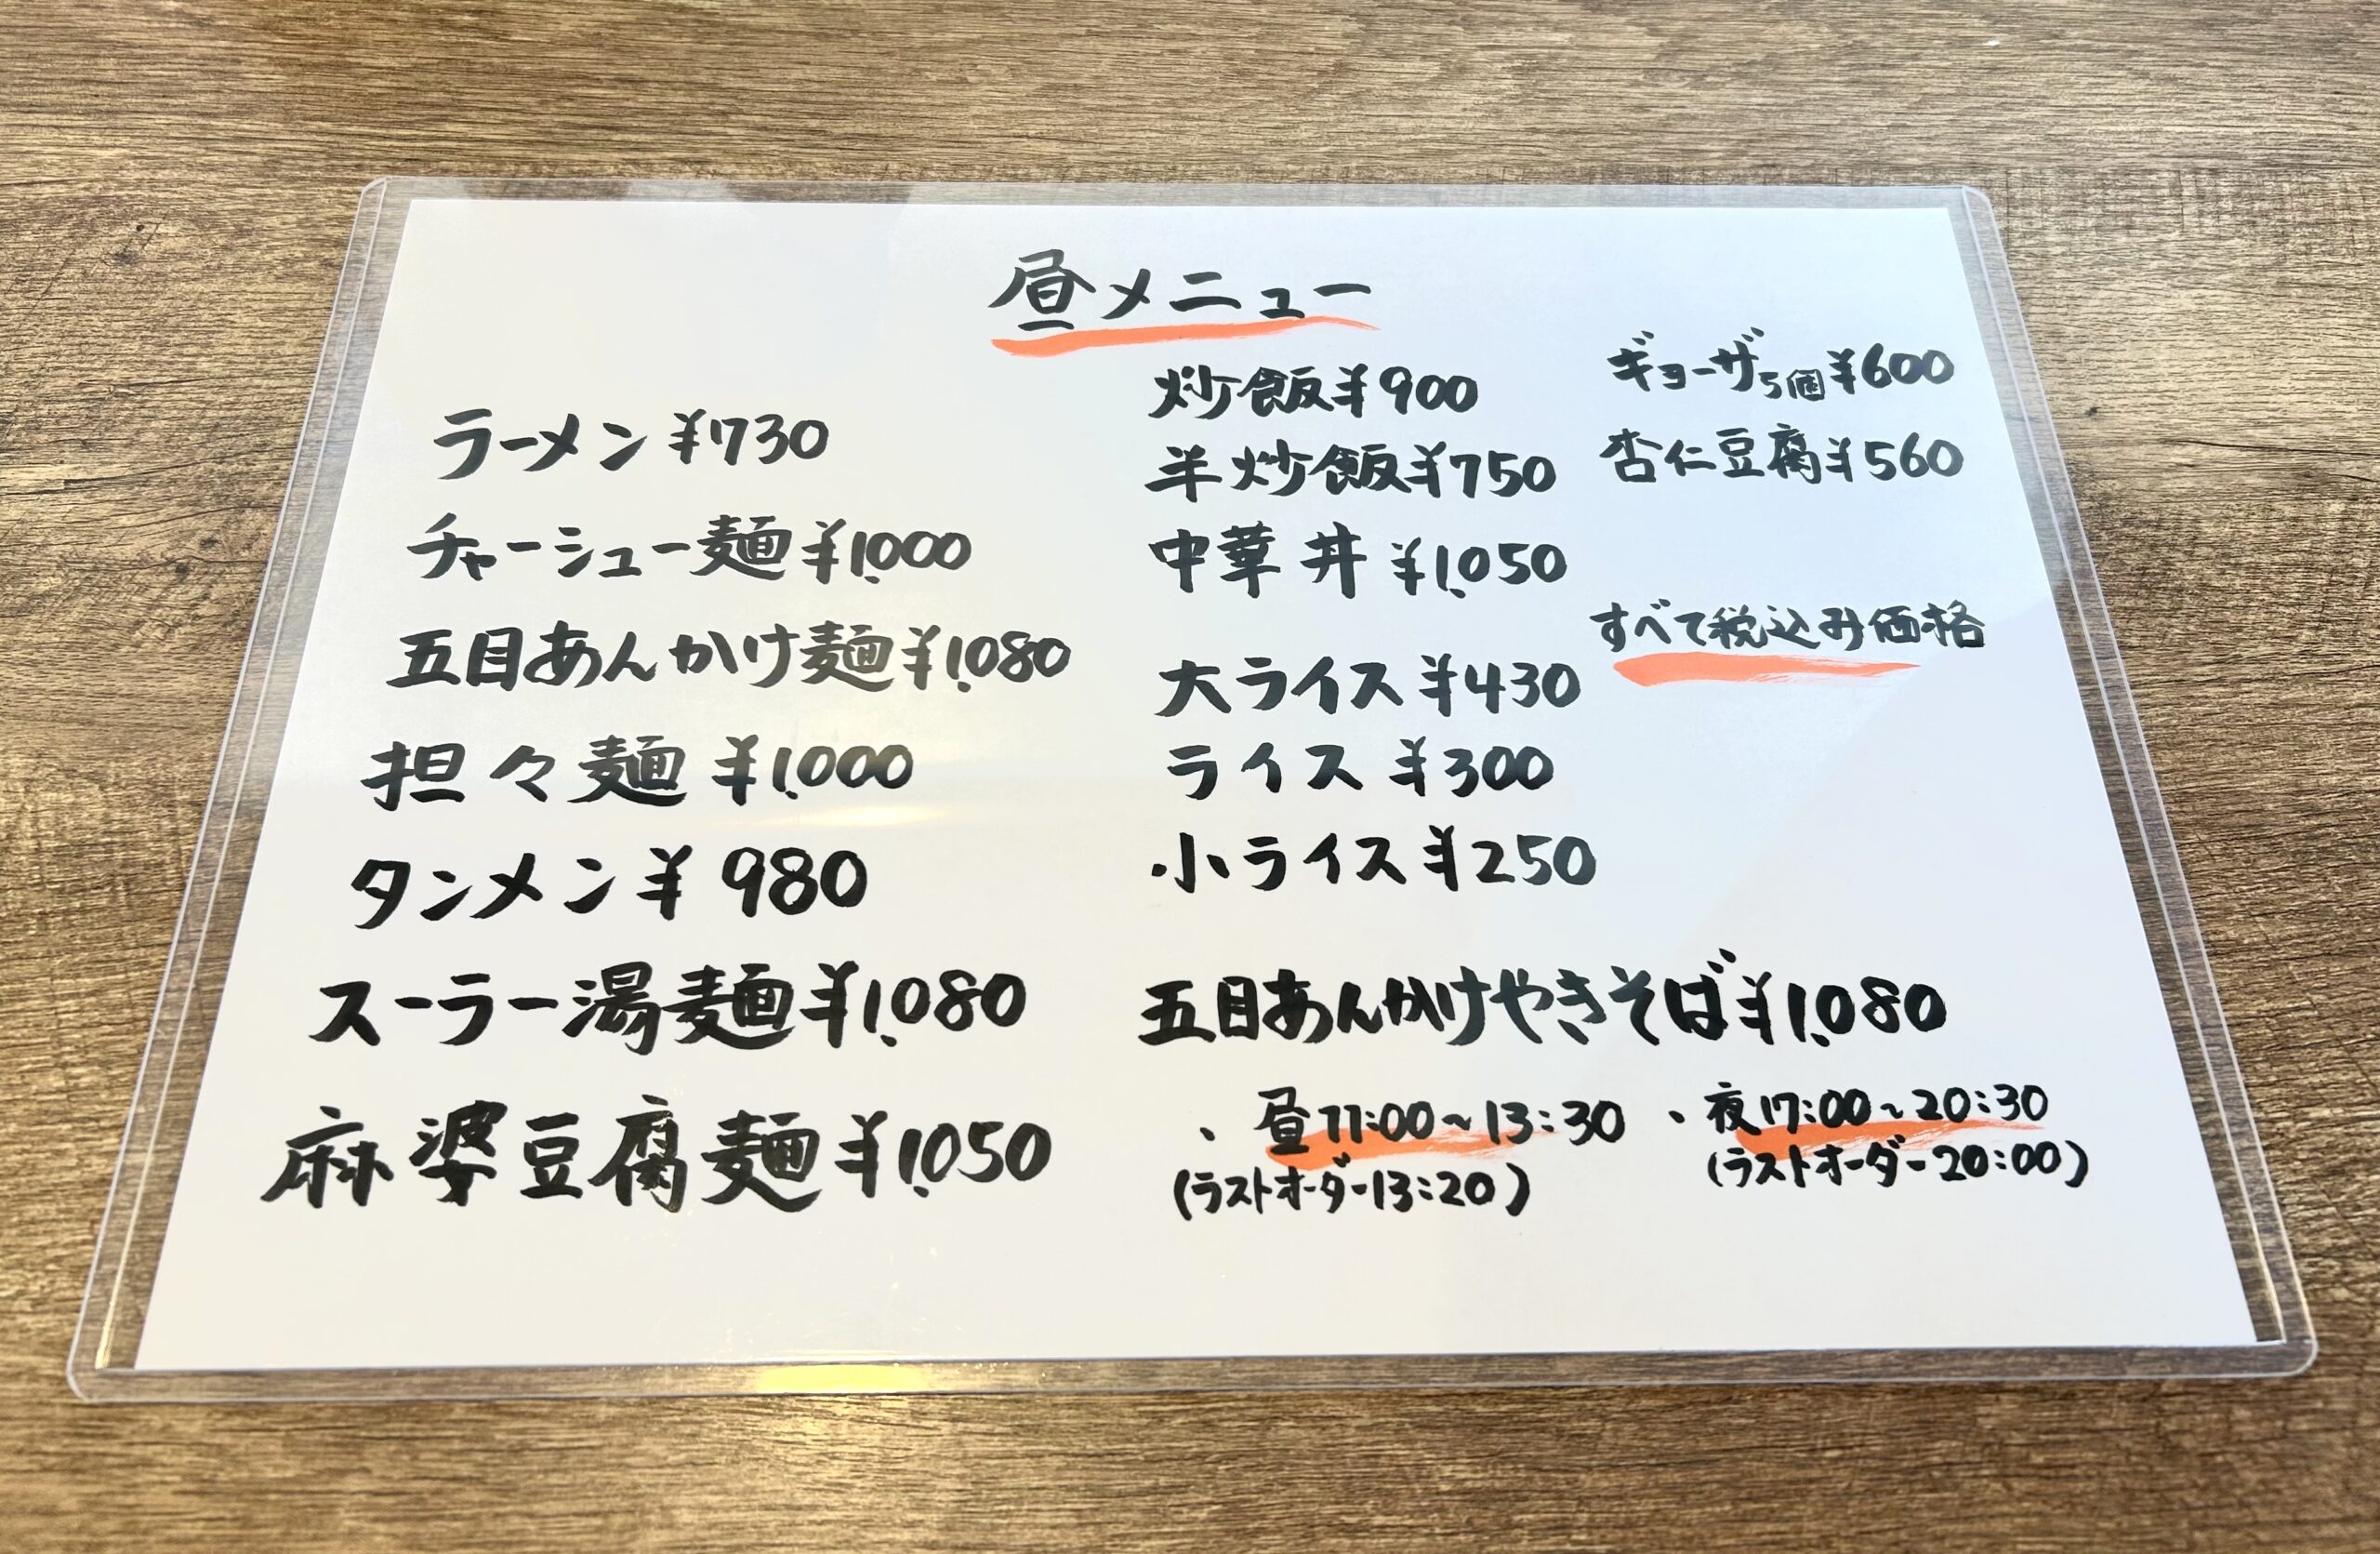 昼メニュー
ラーメン ¥730
チャーシュー麺 ¥1,000
五目あんかけ麺 ¥1,080
担々麺 ¥1,000
タンメン ¥980
スーラー湯麺 ¥1,080
麻婆豆腐麺 ¥1,050
炒飯 ¥900
半炒飯 ¥750
中華丼 ¥1,050
大ライス ¥430
ライス ¥300
小ライス ¥250
ギョーザ5個 ¥600
杏仁豆腐 ¥560
すべて税込み価格
五目あんかけやきそば ¥1,080
、昼11:00~13:30
(ラストオーダー13:20)
、夜17:00~20:30
(ラストオーダー20:00)